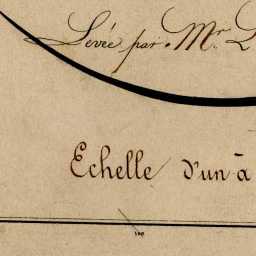 Levée par Mr
Echelle d'un à